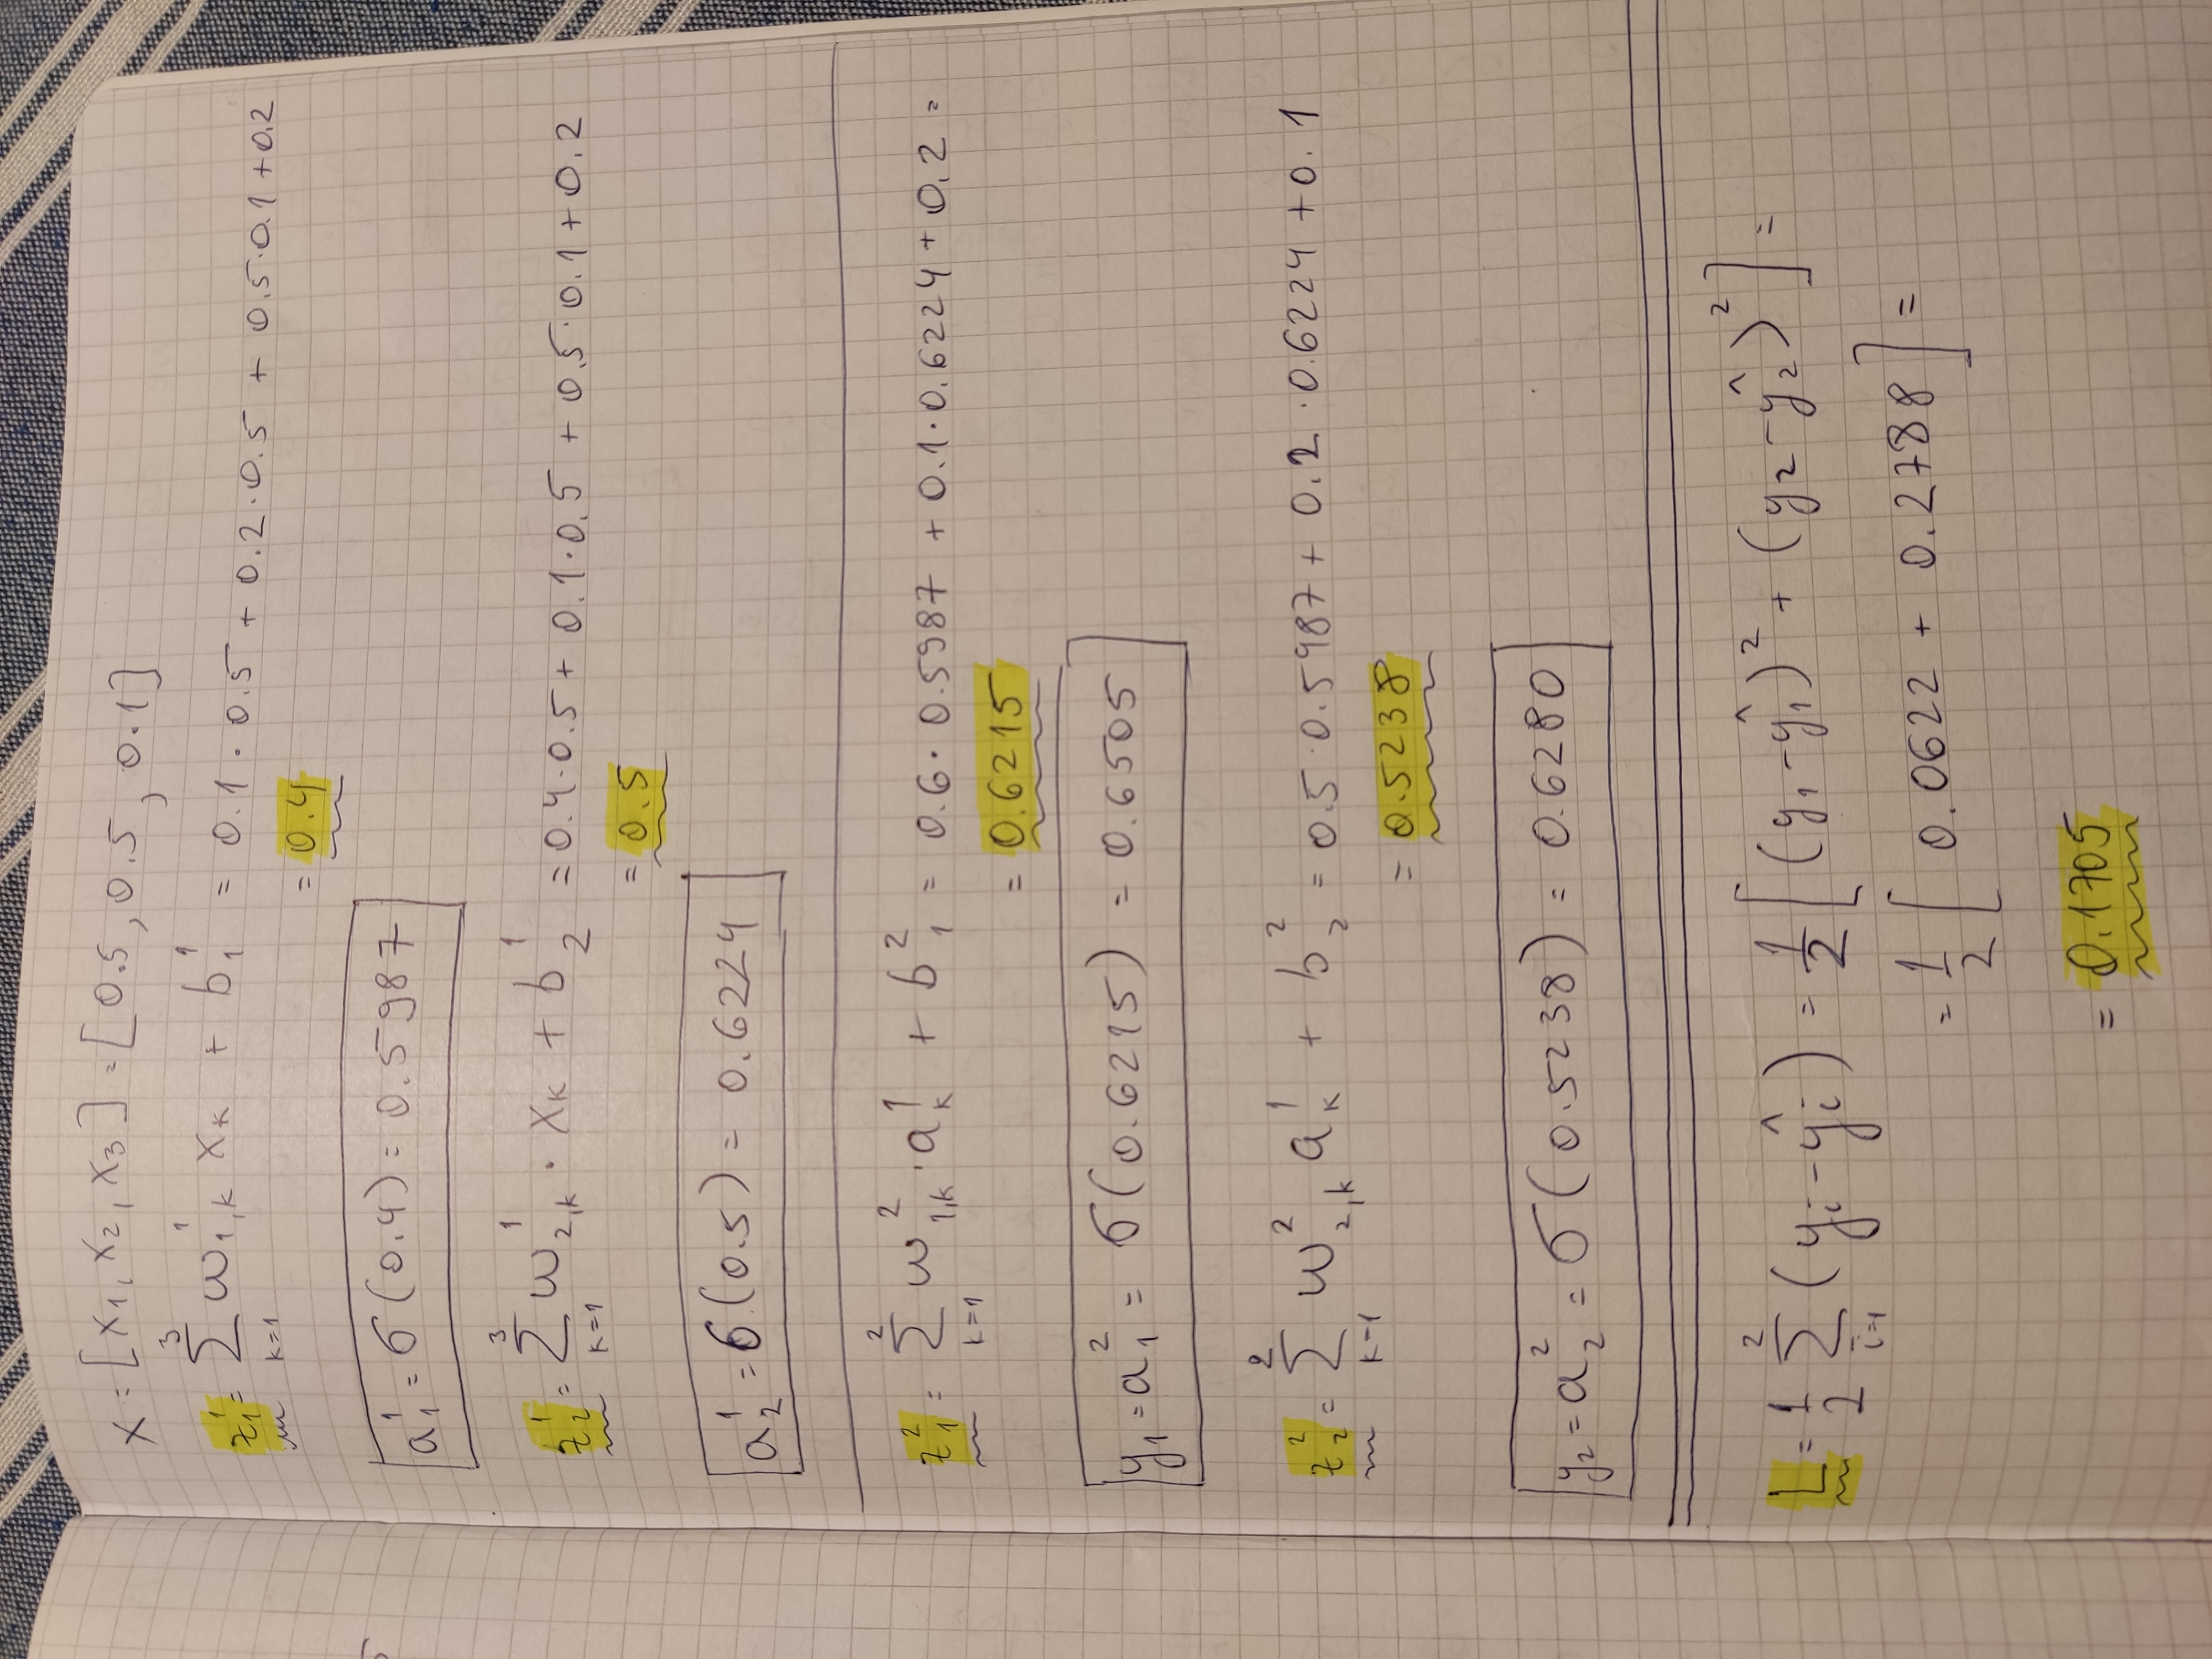 x = [x₁, x₂, x₃] = [0.5, 0.5, 0.1]
z₁¹ = Σₖ₌₁³ w¹₁,ₖ xₖ + b₁¹ = 0.1 · 0.5 + 0.2 · 0.5 + 0.5 · 0.1 + 0.2
= 0.4
a₁¹ = σ(0.4) = 0.5987
z₂¹ = Σₖ₌₁³ w¹₂,ₖ · xₖ + b₂¹ = 0.4 · 0.5 + 0.1 · 0.5 + 0.5 · 0.1 + 0.2
= 0.5
a₂¹ = σ(0.5) = 0.6224
z₁² = Σₖ₌₁² w²₁,ₖ · aₖ¹ + b₁² = 0.6 · 0.5987 + 0.1 · 0.6224 + 0.2 =
= 0.6215
y₁ = a₁² = σ(0.6215) = 0.6505
z₂² = Σₖ₌₁² w²₂,ₖ aₖ¹ + b₂² = 0.5 · 0.5987 + 0.2 · 0.6224 + 0.1
= 0.5238
y₂ = a₂² = σ(0.5238) = 0.6280
L = 1/2 Σᵢ₌₁² (yᵢ - ŷᵢ) = 1/2 [(y₁ - ŷ₁)² + (y₂ - ŷ₂)²] =
= 1/2 [0.0622 + 0.2788] =
= 0.1705